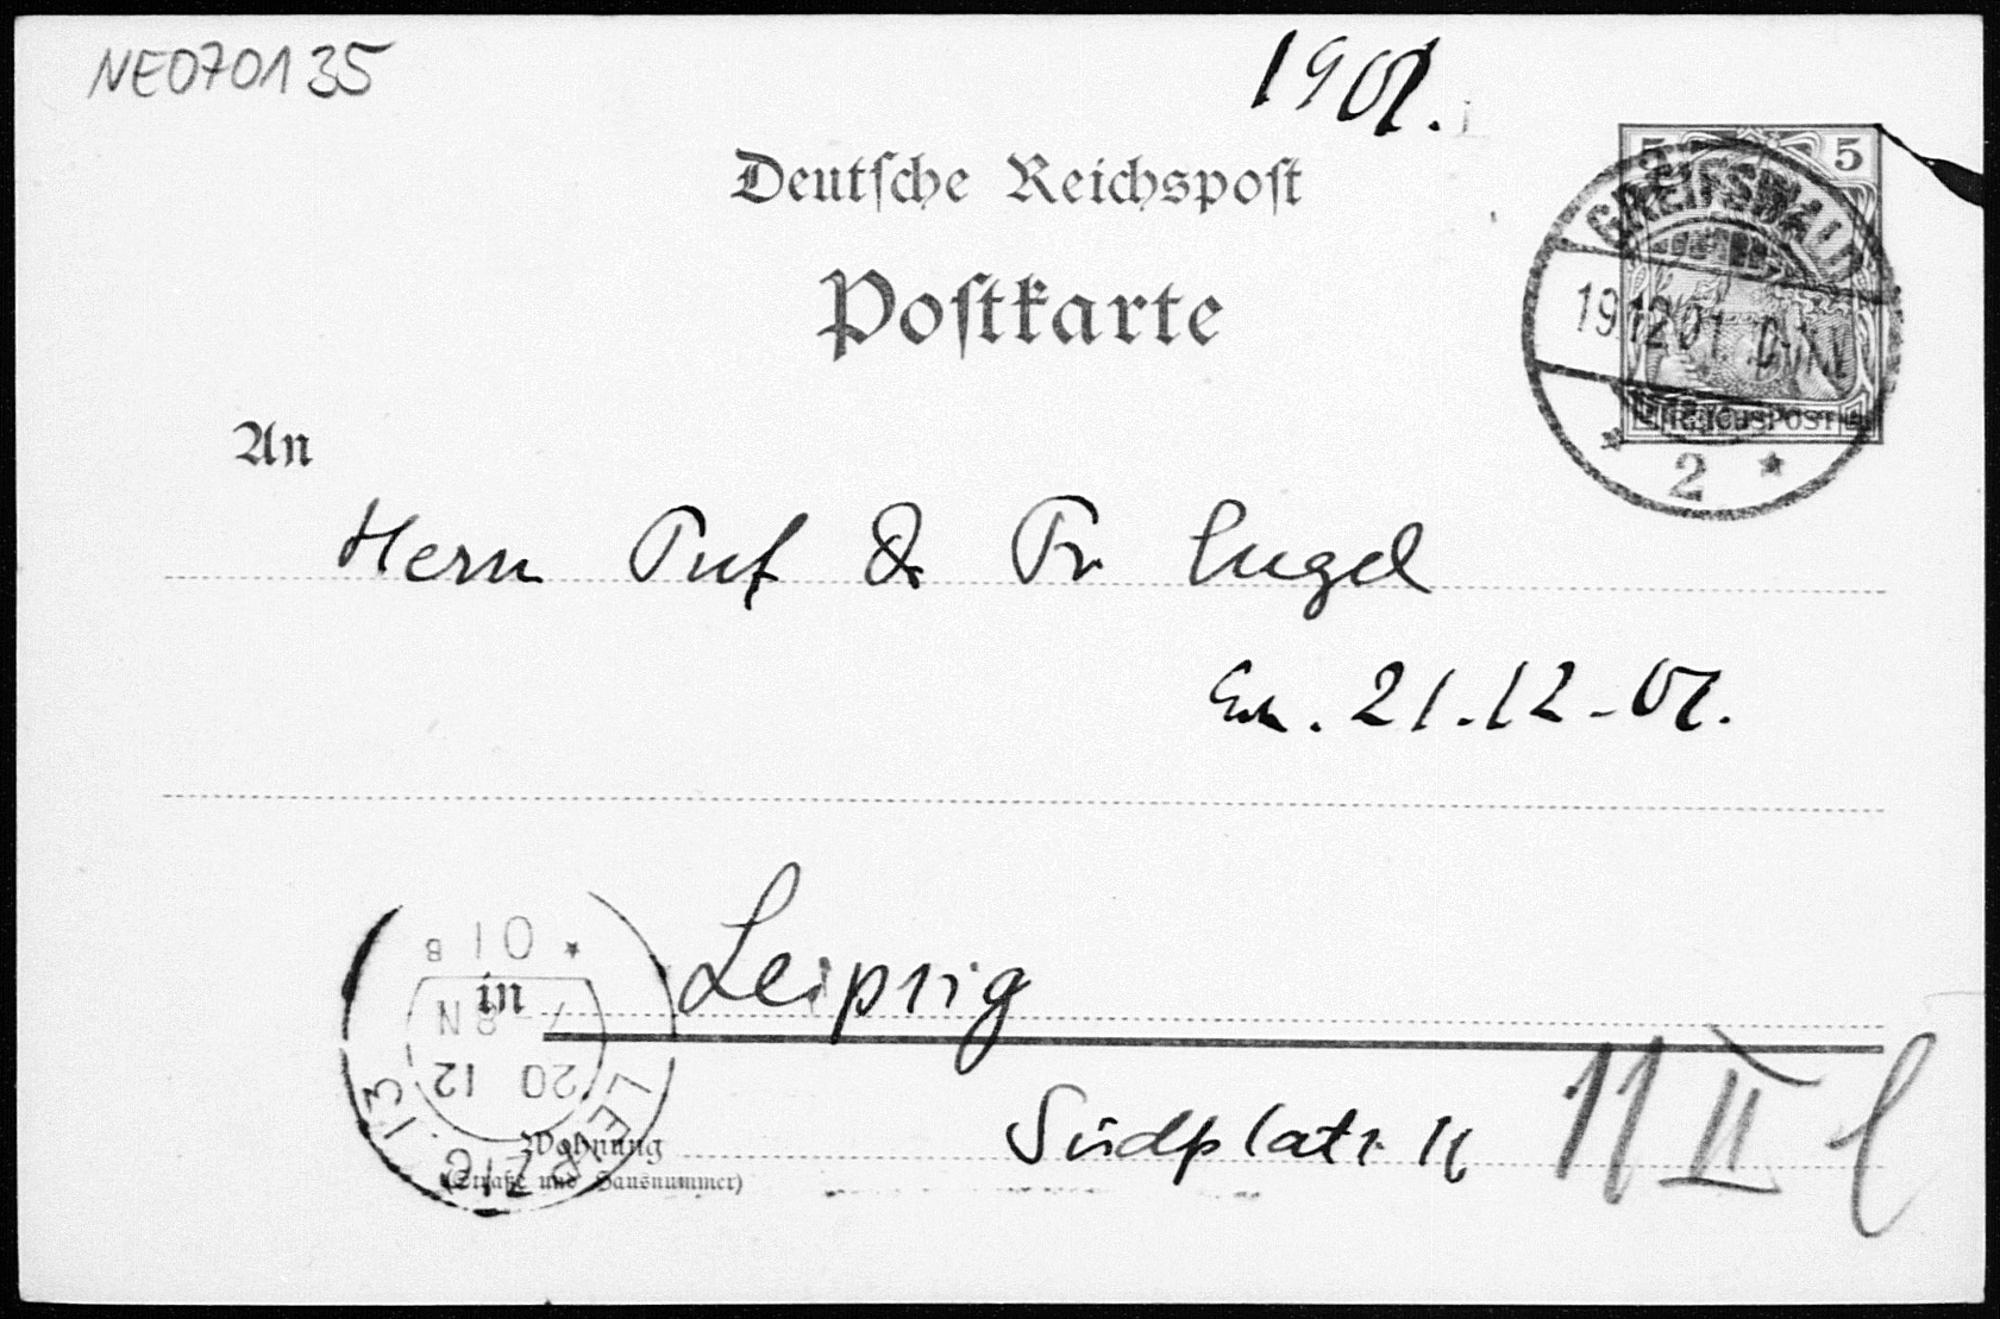 NE070135
1901.
Deutsche Reichspost
Postkarte
5 5
GREIFSWALD
19.12.01.
REICHSPOST
* 2 *
An
Herrn Prof Dr Fr Engel
21.12.01.
in Leipzig
LEIPZIG 13
20 12
7-8 N
* 01 B
Wohnung
(Straße und Hausnummer)
Südplatz 11
11 II l